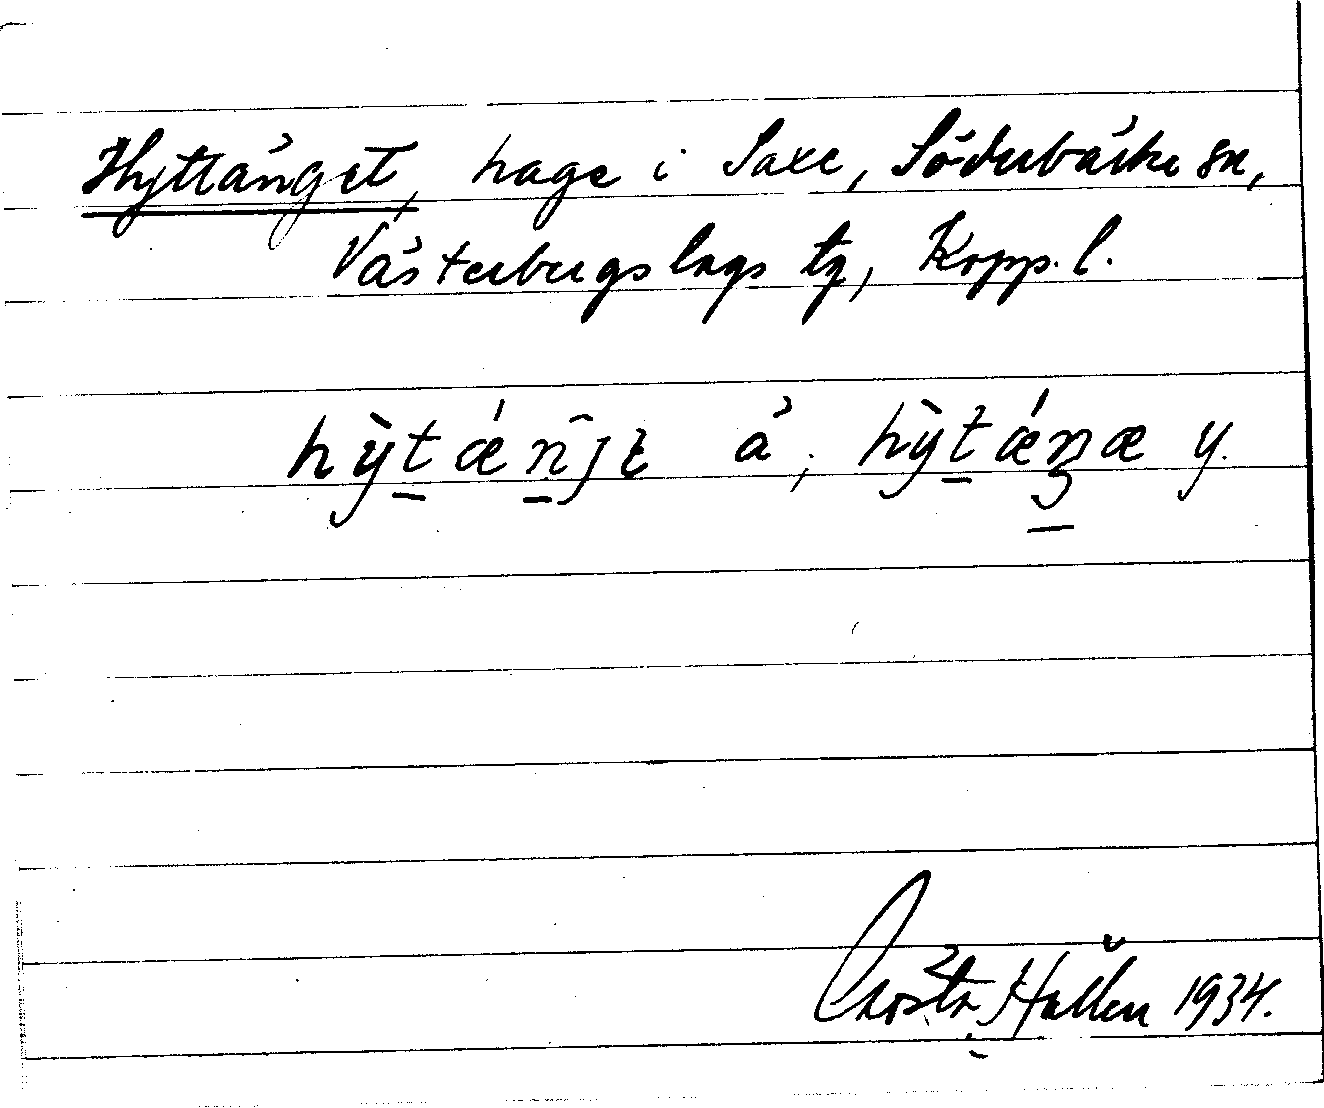 Hyttänget, hage i Saxe, Söderbärke sn,
Västerbergslags tg, Kopp. l.
hỳtǽn̂ȷt ä; hỳtǽŋæ y.
Gösta Hallén 1934.